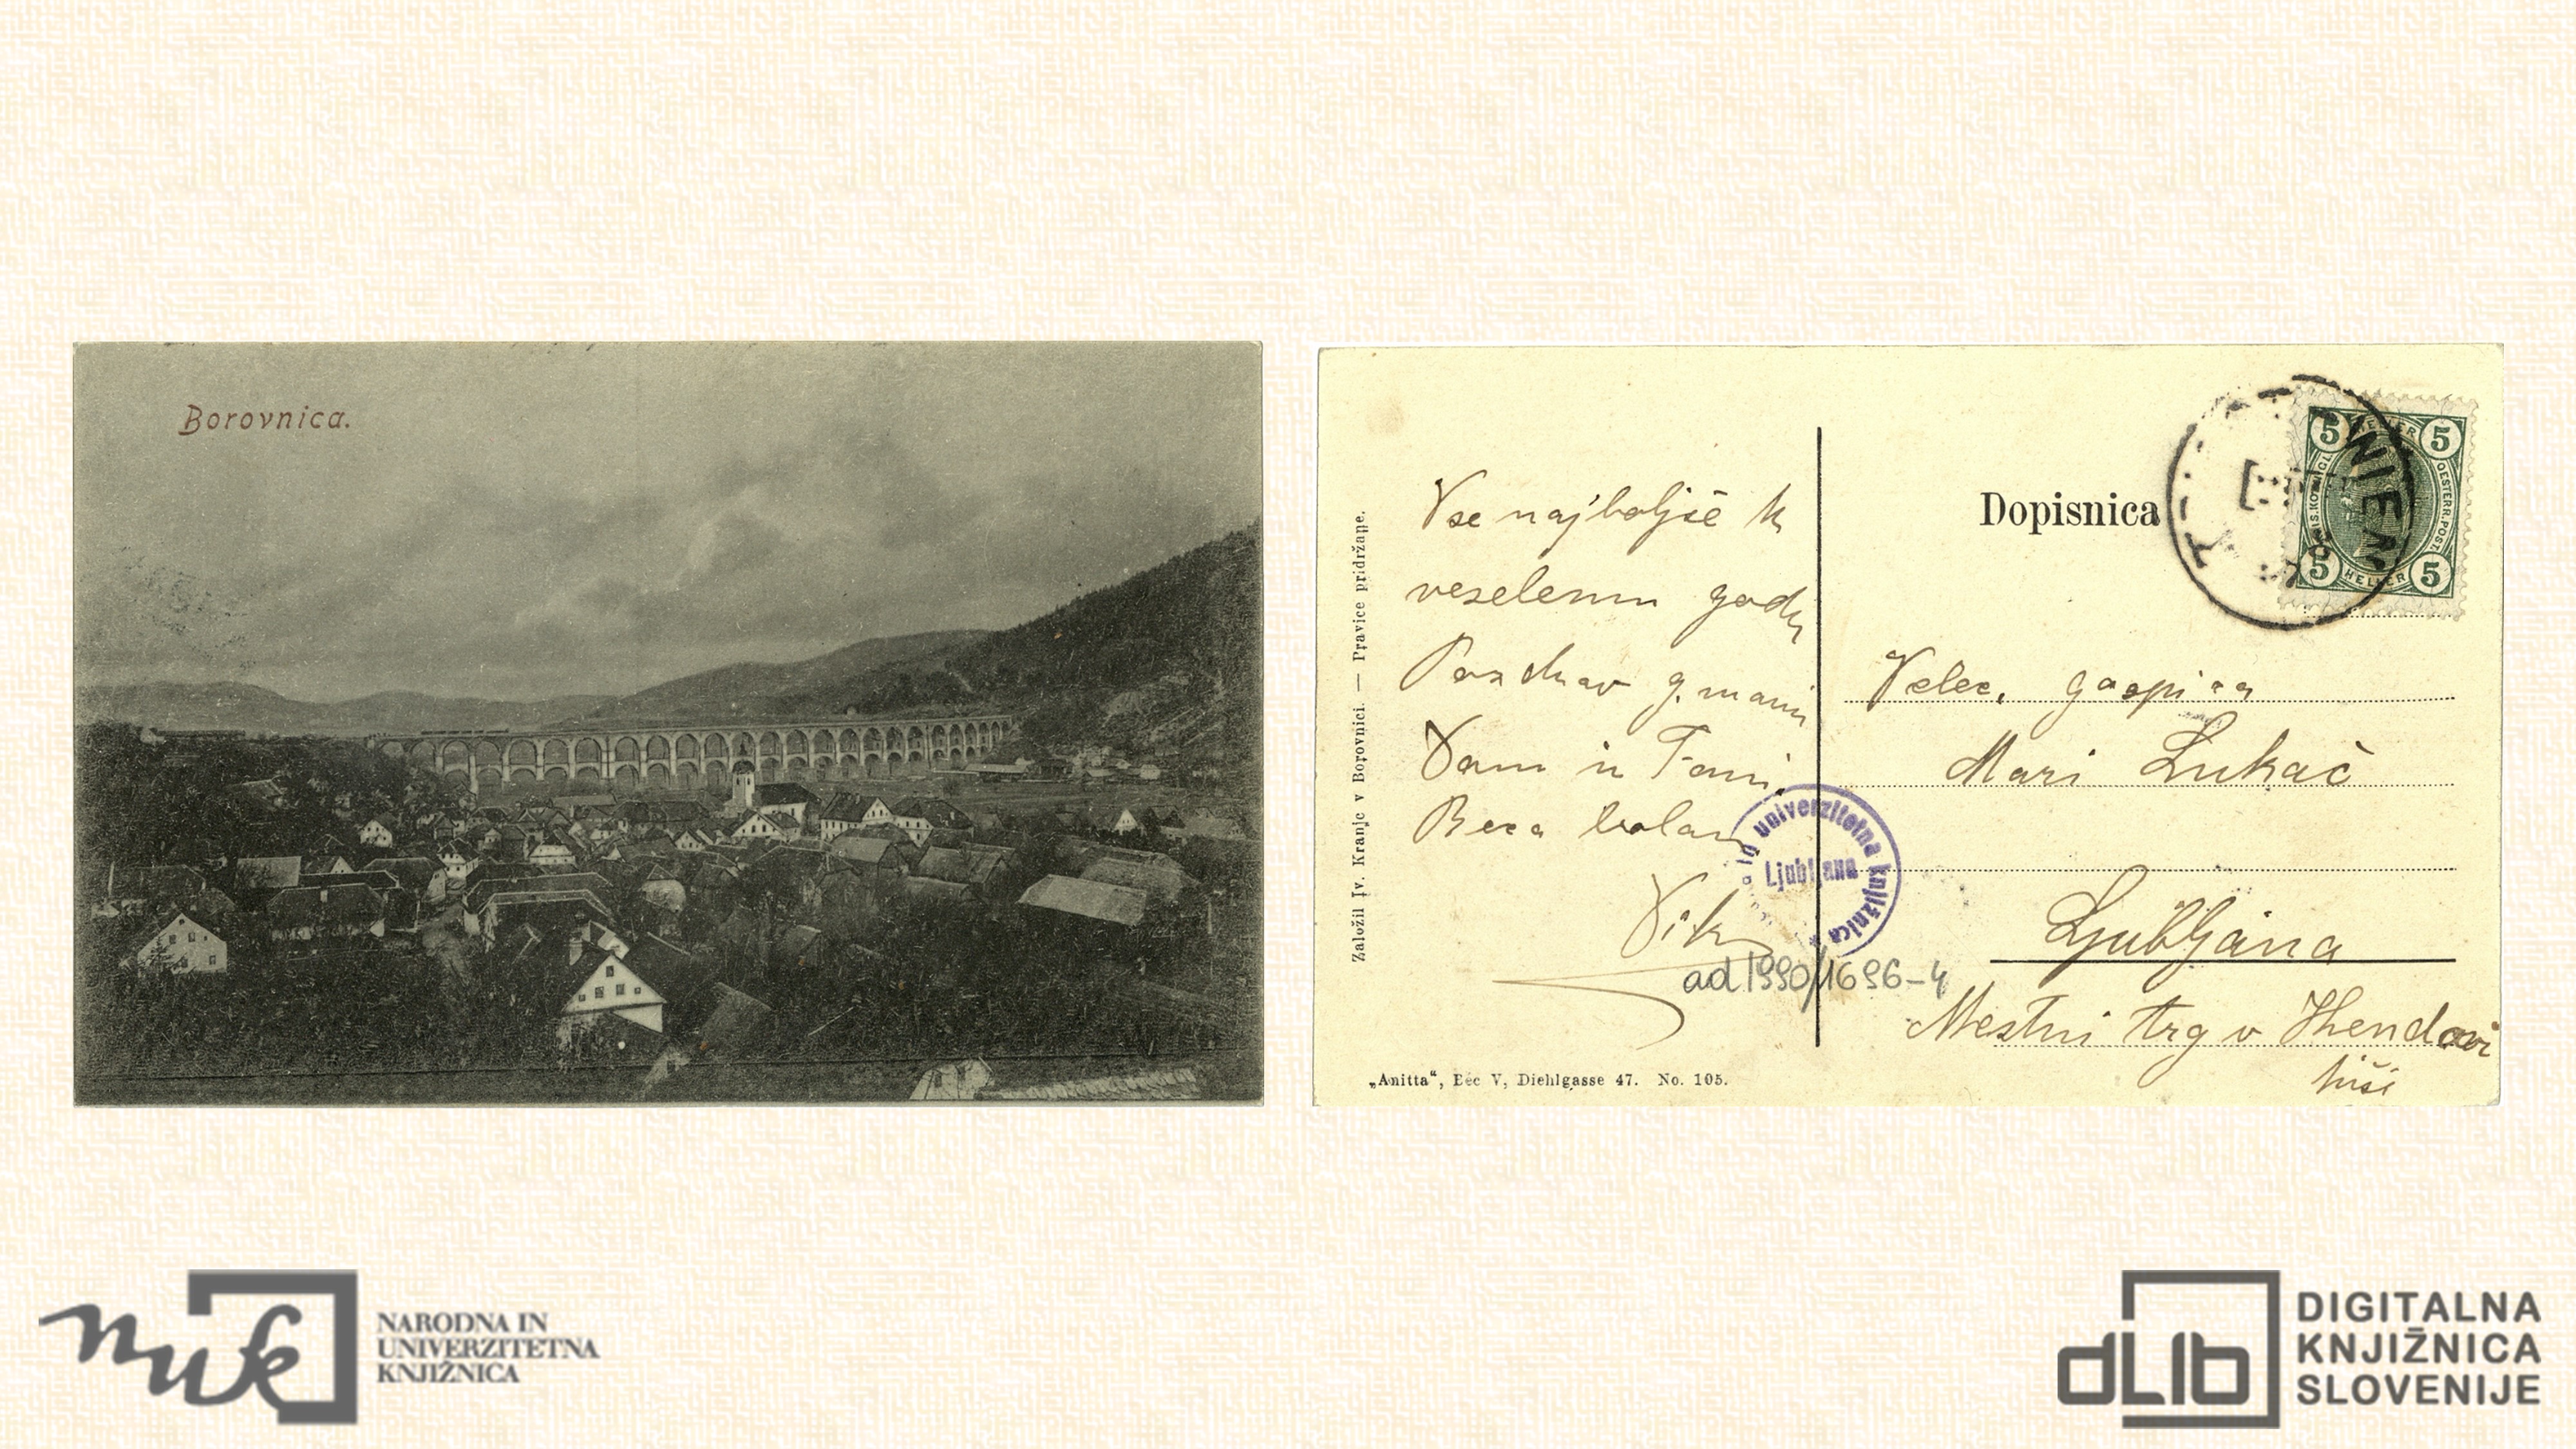 Borovnica.
Založil Iv. Kranjc v Borovnici. — Pravice pridržane.
Vse najboljše k
veselemu godu
Pozdrav g. mami
Vam in Fani,
„Anitta“, Bec V, Diehlgasse 47. No. 105.
Dopisnica
5 HELLER 5
OESTERR.POST
5 HELLER 5
Velec. gospica
Mari Lukač
univerzitetna knjižnica
Ljubljana
Ljubljana
ad 1990/1696-4
Mestni trg v
hiši
nuk
NARODNA IN
UNIVERZITETNA
KNJIŽNICA
dLib
DIGITALNA
KNJIŽNICA
SLOVENIJE